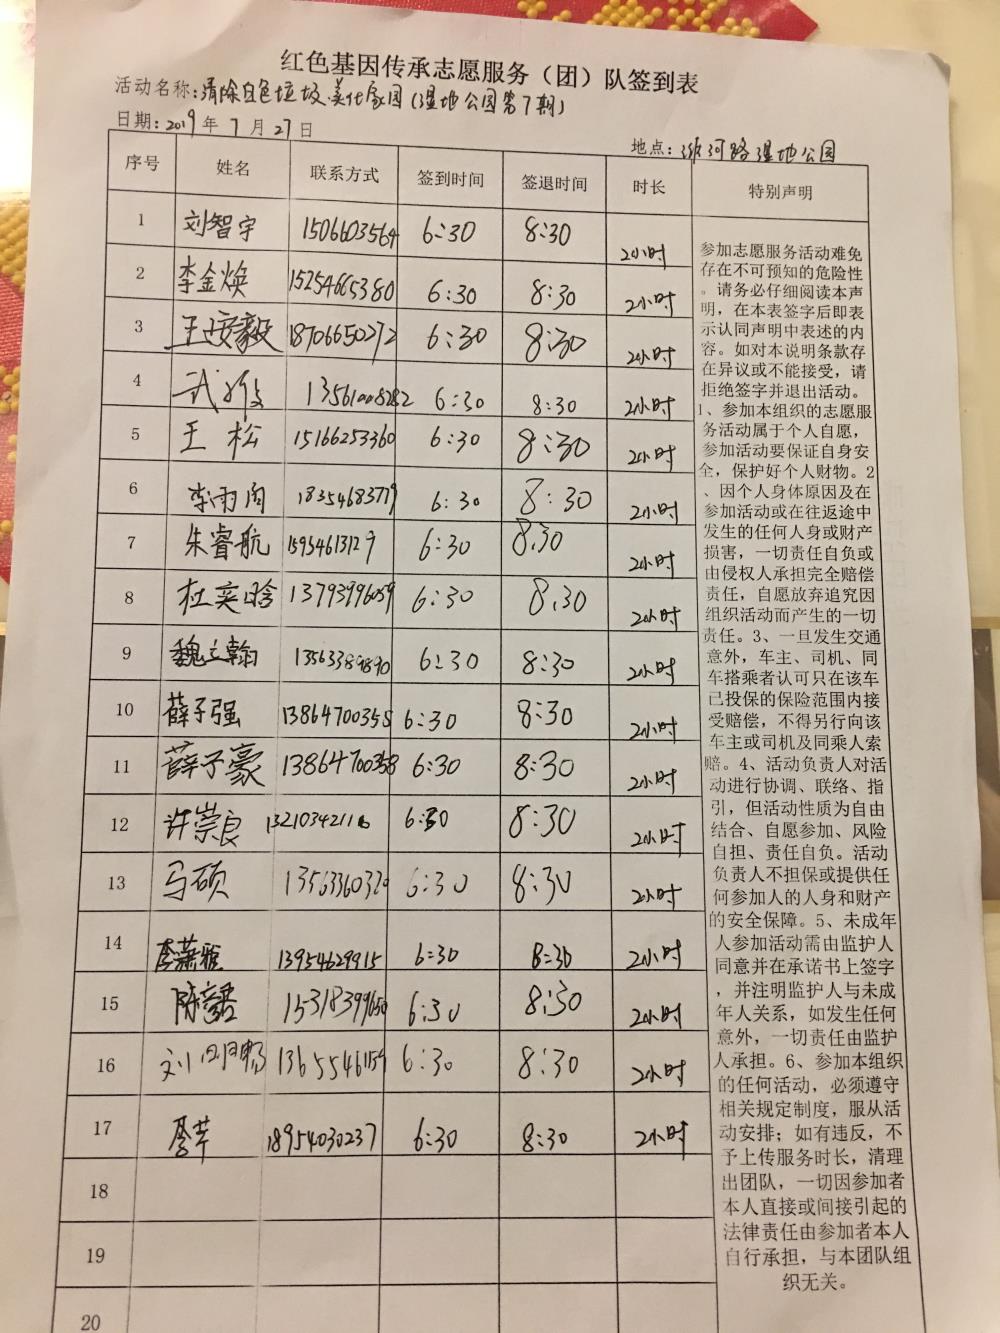 红色基因传承志愿服务（团）队签到表
活动名称：清除白色垃圾.美化家园（湿地公园第7期）
日期：2019年7月27日
地点：湿地公园
序号 姓名 联系方式 签到时间 签退时间 时长 特别声明
1 刘智宇 1506603564 6:30 8:30 2小时
2 李金焕 15254665380 6:30 8:30 2小时
3 18706650272 6:30 8:30 2小时
4 13561008282 6:30 8:30 2小时
5 王松 15166253360 6:30 8:30 2小时
6 李雨闲 18354683779 6:30 8:30 2小时
7 朱睿航 6:30 8.30 2小时
8 杜奕晗 13793996059 6:30 8.30 2小时
9 魏立翰 13563389890 6:30 8:30 2小时
10 薛子强 13864700358 6:30 8:30 2小时
11 薛子豪 13864700358 6:30 8:30 2小时
12 许崇良 6:30 8:30 2小时
13 马硕 6:30 8:30 2小时
14 13954629915 6:30 8:30 2小时
15 6:30 8:30 2小时
16 6:30 8:30 2小时
17 18954030237 6:30 8:30 2小时
18
19
20
参加志愿服务活动难免
存在不可预知的危险性
。请务必仔细阅读本声
明，在本表签字后即表
示认同声明中表述的内
容。如对本说明条款存
在异议或不能接受，请
拒绝签字并退出活动。
1、参加本组织的志愿服
务活动属于个人自愿，
参加活动要保证自身安
全，保护好个人财物。2
、因个人身体原因及在
参加活动或在往返途中
发生的任何人身或财产
损害，一切责任自负或
由侵权人承担完全赔偿
责任，自愿放弃追究因
组织活动而产生的一切
责任。3、一旦发生交通
意外，车主、司机、同
车搭乘者认可只在该车
已投保的保险范围内接
受赔偿，不得另行向该
车主或司机及同乘人索
赔。4、活动负责人对活
动进行协调、联络、指
引，但活动性质为自由
结合、自愿参加、风险
自担、责任自负。活动
负责人不担保或提供任
何参加人的人身和财产
的安全保障。5、未成年
人参加活动需由监护人
同意并在承诺书上签字
，并注明监护人与未成
年人关系，如发生任何
意外，一切责任由监护
人承担。6、参加本组织
的任何活动，必须遵守
相关规定制度，服从活
动安排；如有违反，不
予上传服务时长，清理
出团队，一切因参加者
本人直接或间接引起的
法律责任由参加者本人
自行承担，与本团队组
织无关。